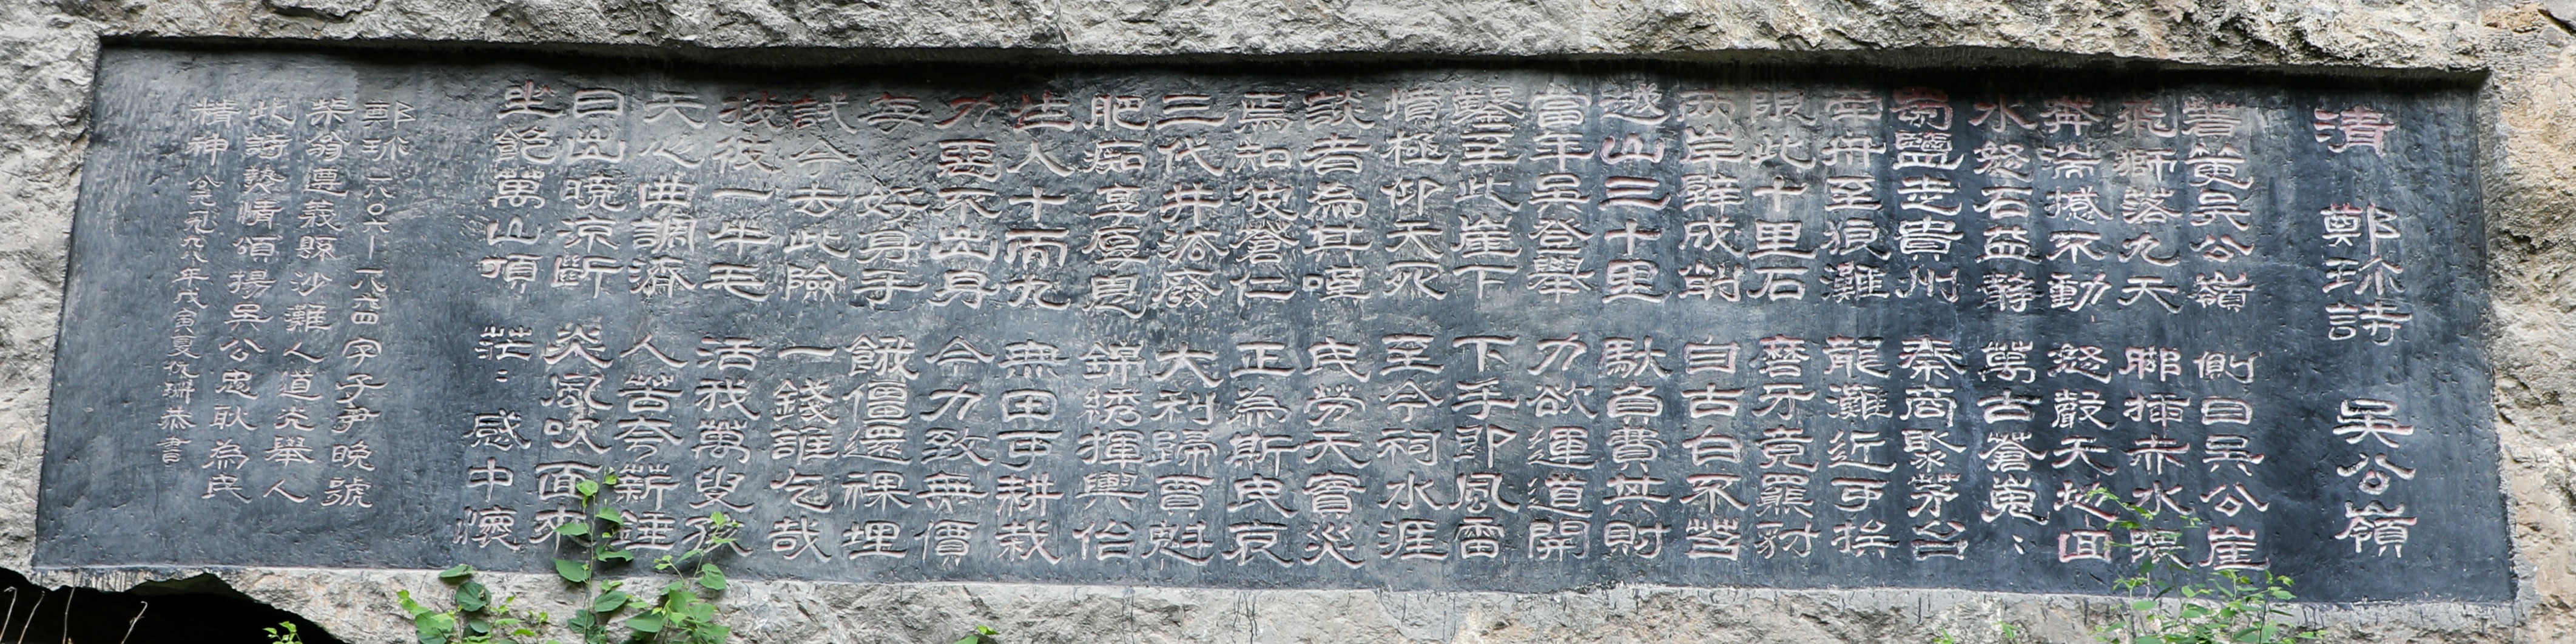 清 鄭珍詩 吳公嶺
著筧吳公嶺 側目吳公崖
飛獅落九天 腳插赤水隈
奔湍撼不動 怒齧天地回
水怒石益靜 萬古蒼嵬:
蜀鹽走貴州 秦商聚茅台
牽舟至猴灘 龍灘近可挨
限此十里石 磨牙竟羆豺
兩岸辟成 自古白不苔
越山三十里 馱負費其財
當年吳登舉 力欲運道開
鑿至此崖下 下手即風雷
憤極仰天死 至今祠水涯
談者為其嘆 民勞天實災
焉知彼蒼仁 正為斯民哀
三代井法廢 大利歸賈魁
肥痴享厚息 錦綉揮輿佁
生人十而九 無田可耕栽
力惡不出身 今力致無價
孥:好身手 餓僵還裸埋
試令去此險 一錢誰乞哉
拔彼一牛毛 活我萬叟孩
天心曲調濟 人苦夸薪錘
日出曉涼斷 炎風吹面來
坐飽萬山頂 茫:感中懷
鄭珍一八〇六—一八六四字子尹晚號
柴翁遵義縣沙灘人道光舉人
此詩熱情頌揚吳公忠耿為民
精神 公元一九九八年戊寅夏仇珊恭書